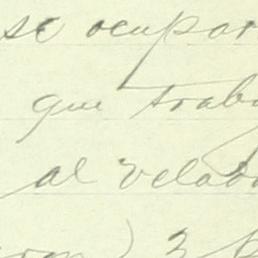 se ocupar
que trab
al velad